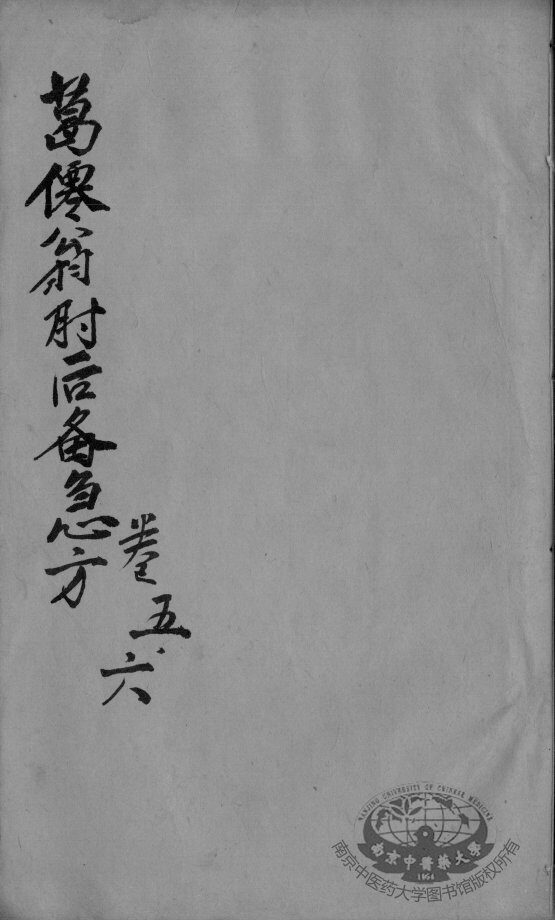 葛僊翁肘后备急方
卷五六
NANJING UNIVERSITY OF CHINESE MEDICINE
南京中醫藥大學
1954
南京中医药大学图书馆版权所有